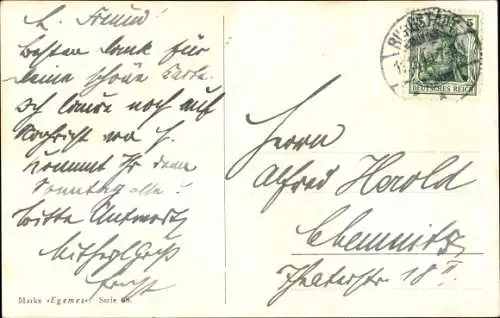 L. Freund!
Besten Dank für
Deine schöne Karte.
Ich laure noch auf
Nachricht von H.
Kommt Ihr denn
Sonntag alle?
Bitte Antwort
Mit Gruß
Marke »Egemes« Serie 68.
5
DEUTSCHES REICH
Herrn
Alfred Herold
Chemnitz
Theaterstr 18 II